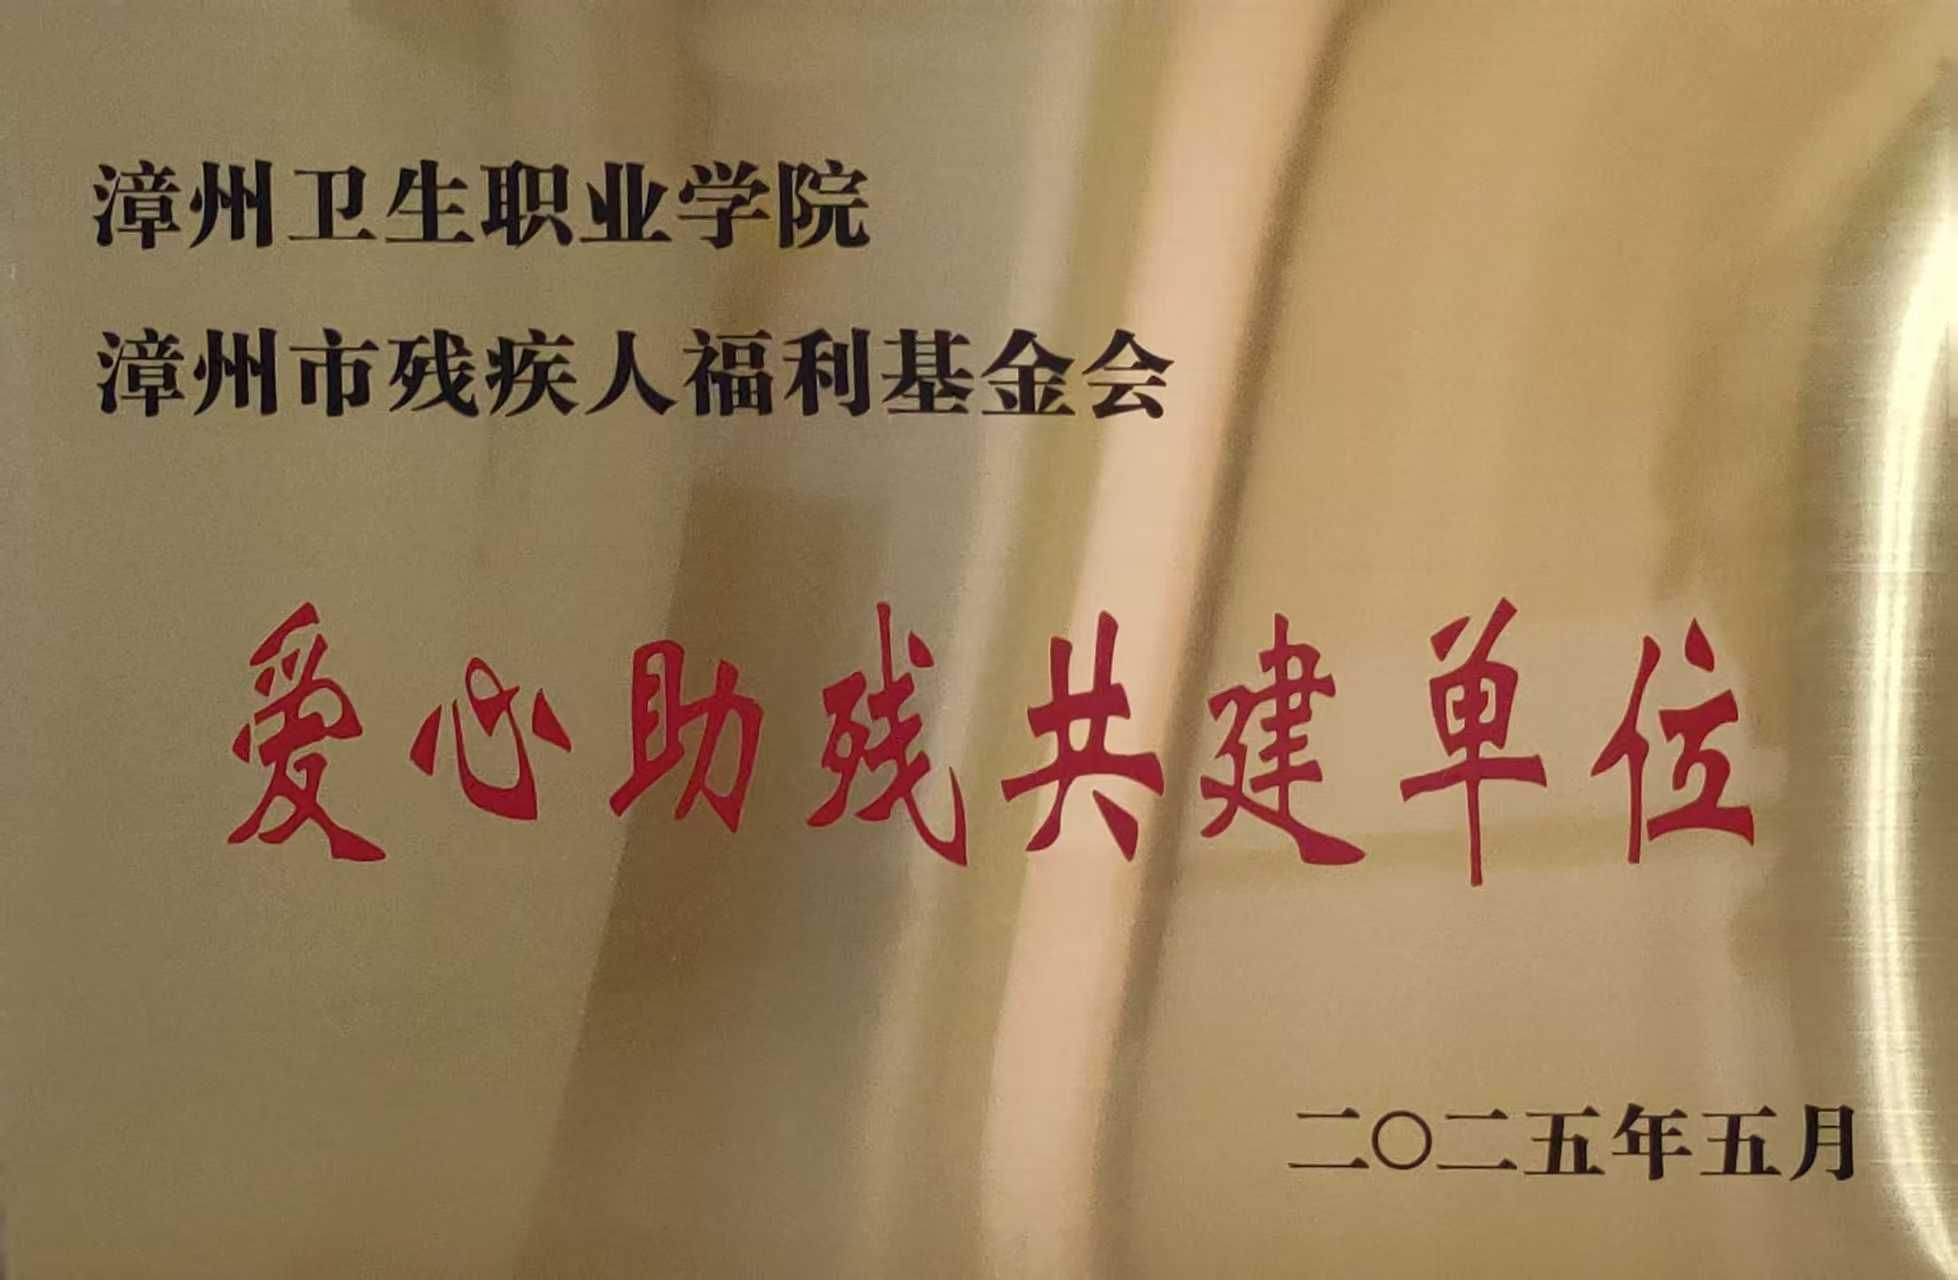 漳州卫生职业学院
漳州市残疾人福利基金会
爱心助残共建单位
二〇二五年五月